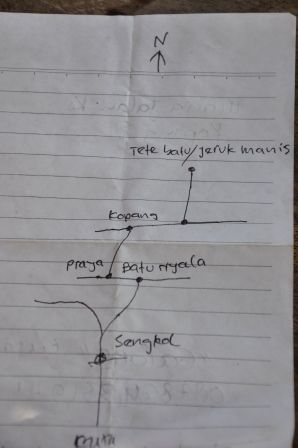 N
Tete batu/jeruk manis
Kopang
Praya
Batu nyala
Sengkol